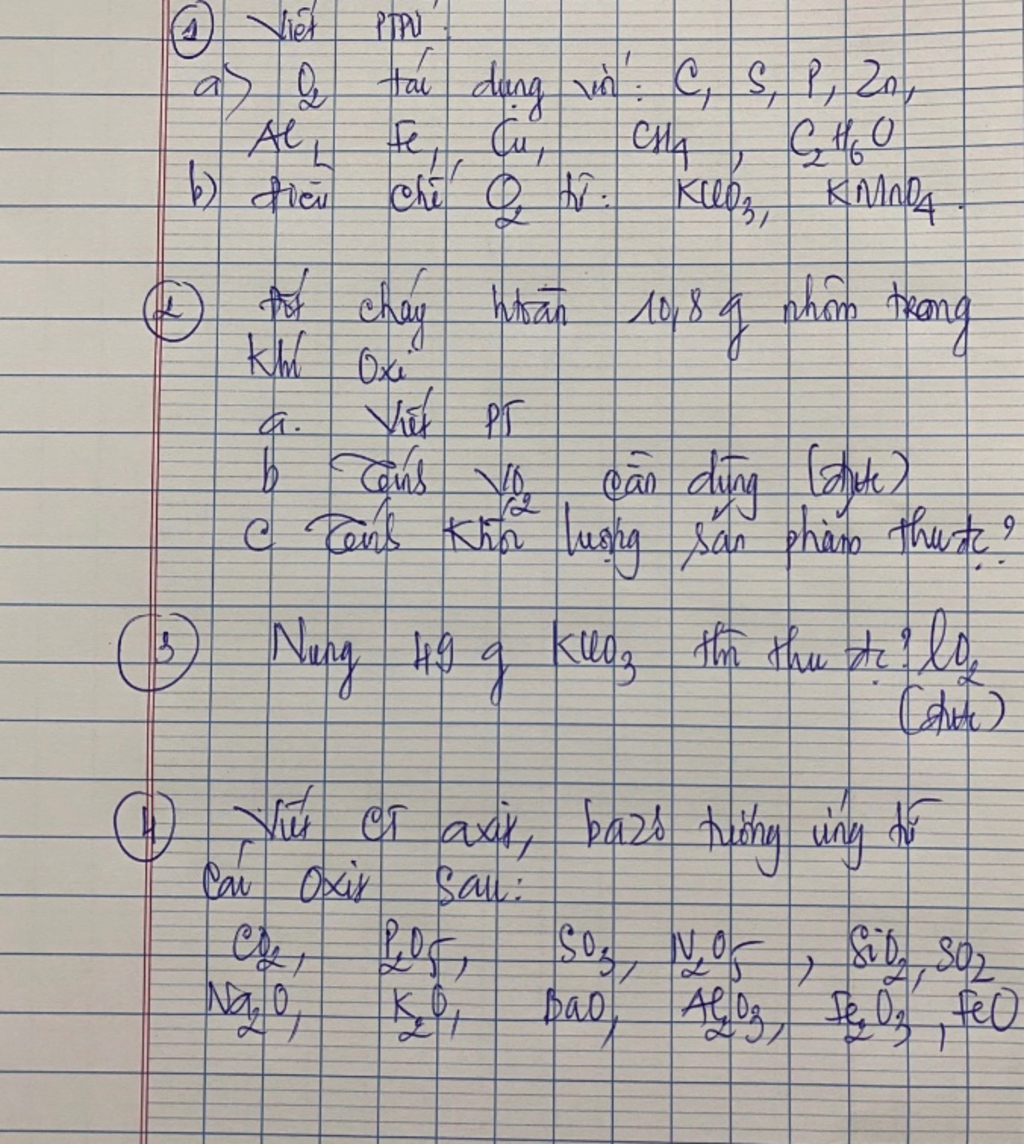 ① Viết PTPƯ:
a) O2 tác dụng với: C, S, P, Zn,
Al, Fe, Cu, CH4, C2H6O
b) Điều chế O2 từ: KClO3, KMnO4.
② Đốt cháy hoàn 10,8 g nhôm trong
khí Oxi
a. Viết PT
b Tính VO2 cần dùng (đktc)
c Tính khối lượng sản phẩm thu đc?
③ Nung 49 g KClO3 thì thu đc ? lO2
(đktc)
④ Viết CT axit, bazơ tương ứng từ
các Oxit sau:
CO2, P2O5, SO3, N2O5, SiO2, SO2
Na2O, K2O, BaO, Al2O3, Fe2O3, FeO